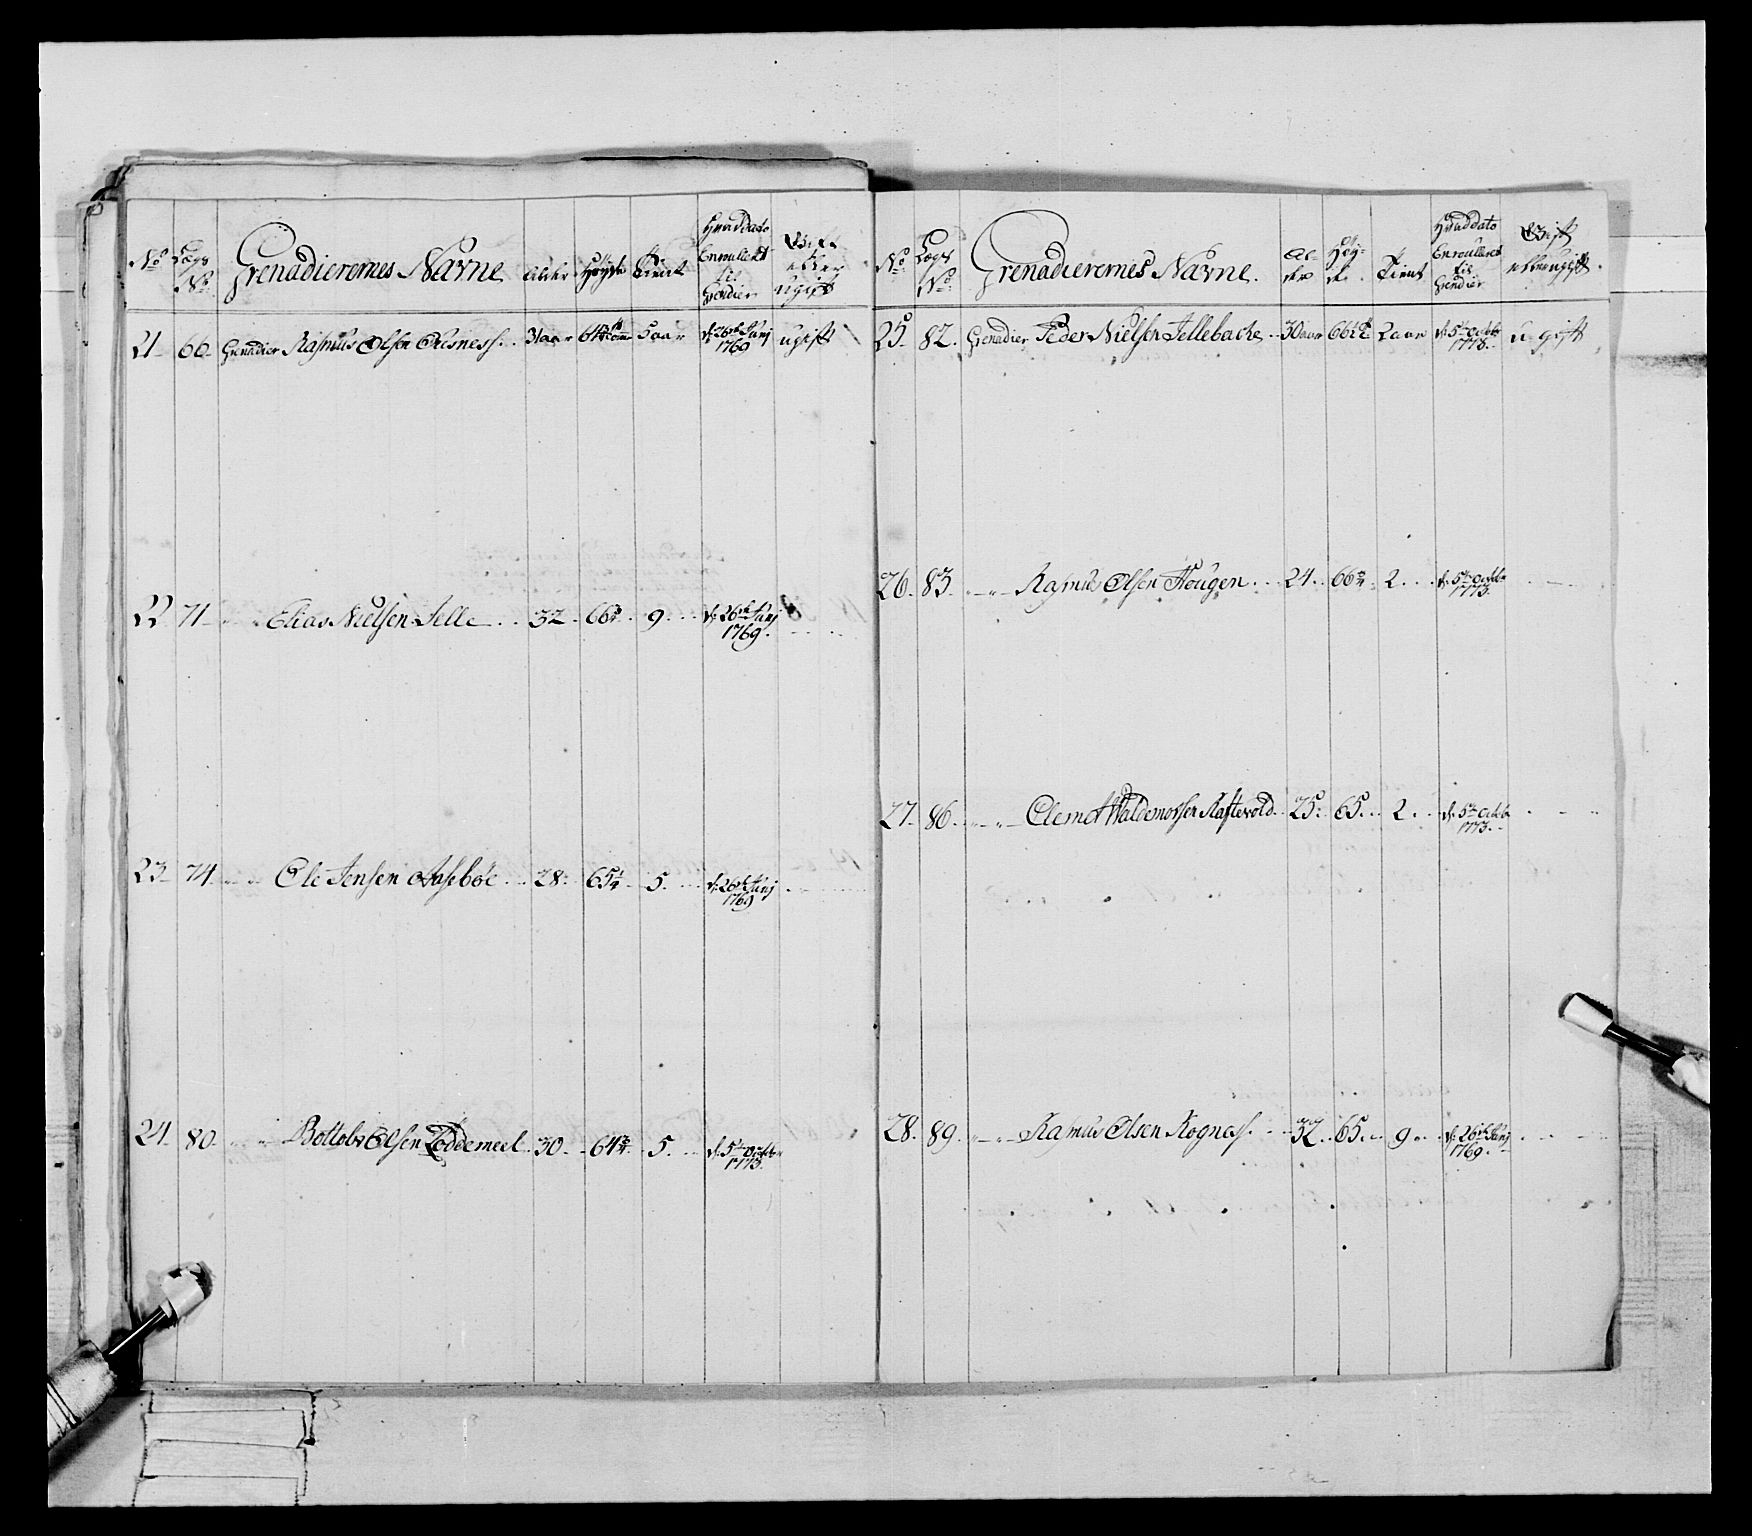 No Lægs No Grenadierernes Navne Alder Høyde Tient Hvad dato Enrouleret til Grenadier Gift eller ugift
21 66 Grenadier Rasmus Olsen 31 aar 5 aar d: 26de Junij 1769 ugift
22 71 Elias Nielsen Selle 32 66 9 d: 26de Junij 1769
23 74 Ole Jensen Aasebøe 28 65 1/4 5 d: 26de Junij 1769
24 80 Olsen Loddemeel 30 64 3/4 5 d: 5te Octobr 1773
No Lægs No Grenadierernes Navne Alder Høyde Tient Hvad dato Enrouleret til Grendier Gift eller ugift
25 82 Grenadier Peder Nielsen Sellebache 30 aar 66 2 aar d: 5te Octobr 1773 ugift
26 83 Rasmus Olsen Hougen 24 66 3/4 2 d: 5te Octobr 1773
27 86 Clemet Waldemorsen Raftevold 25 65 2 d: 5te Octobr 1773
28 89 Rasmus Olsen Rognes 32 65 9 d: 26de Junij 1769